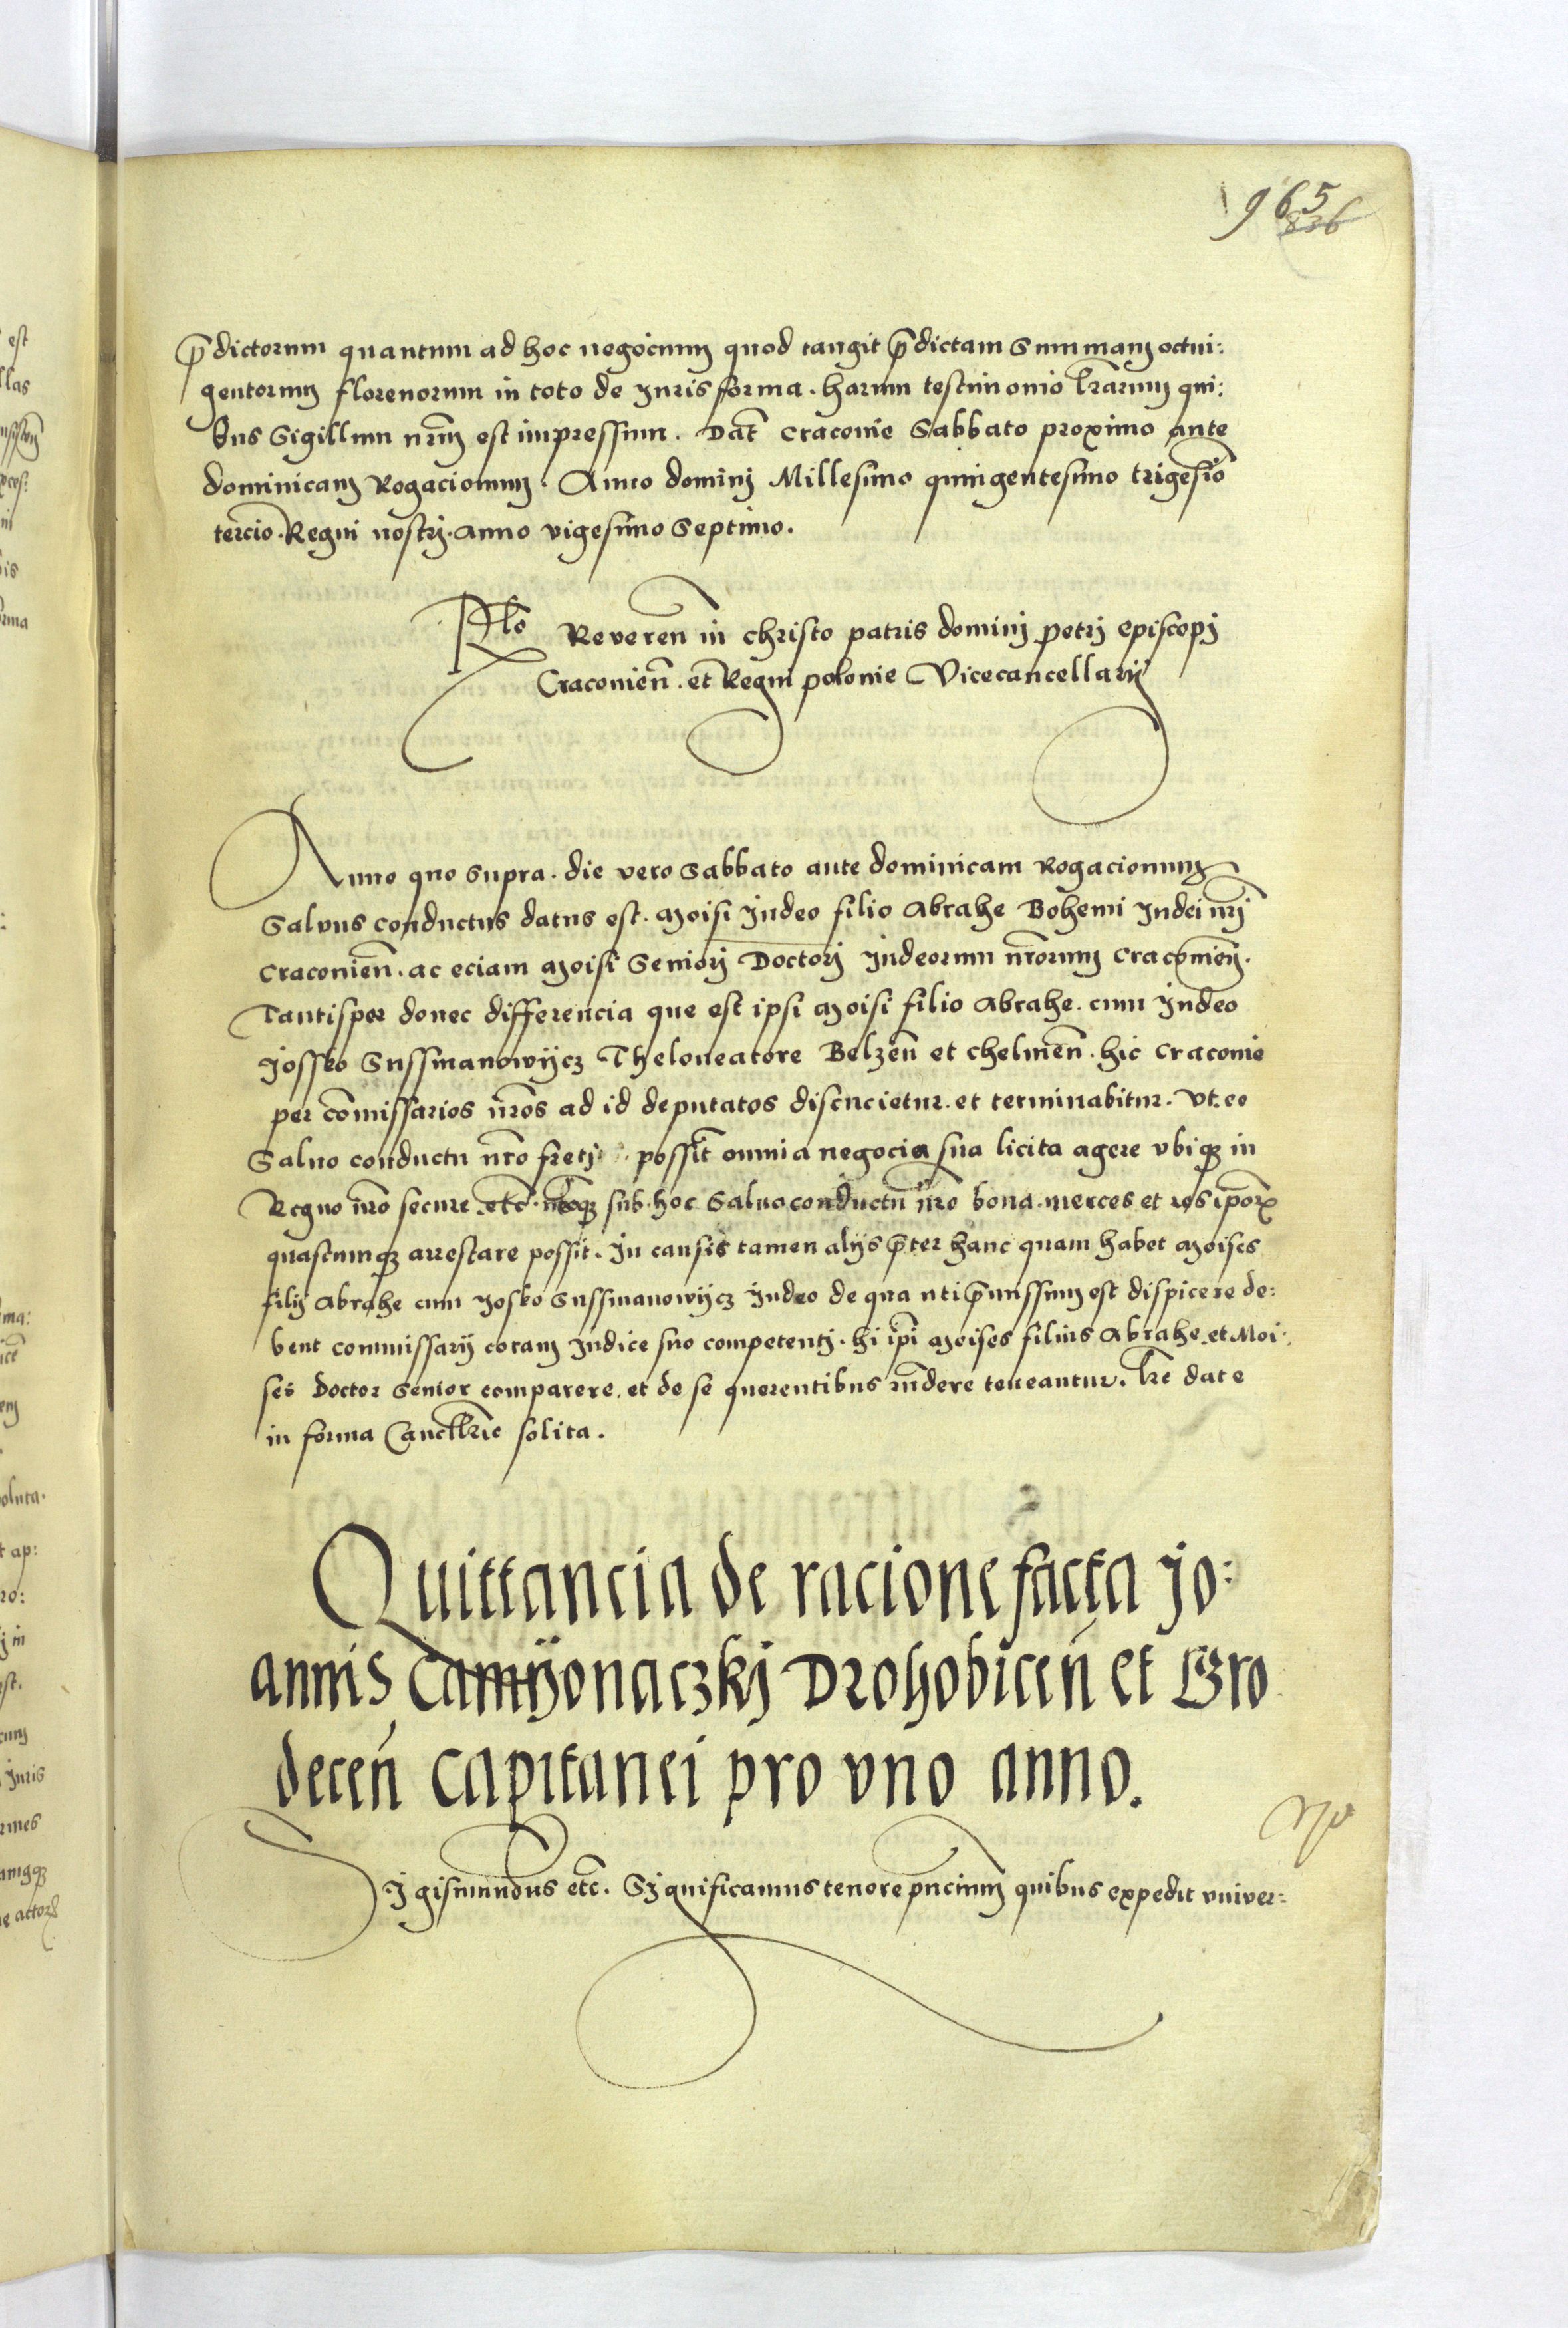 965
836
p̄dictorum quantum ad hoc negocium quod tangit p̄dictam Summam octui:
gentorum florenorum in toto de Juris forma. harum testimonio lr̄arum qui:
bus Sigillum nr̄m est impressum. Dat̄ Cracovie Sabbato proximo ante
dominicam Rogacionum. Anno domini Millesimo quingentesimo trigesīo
tercio. Regni nostri. anno vigesimo Septimo.
Rlo Reveren̄ in christo patris domini petri episcopi
Cracovien̄. et Regni polonie Vicecancellarij
Anno quo supra. die vero Sabbato ante dominicam Rogacionum
Salvus conductus datus est. Moisi Judeo filio Abrahe Bohemi Judei nr̄i
Cracovien̄. ac eciam Moisi Seniori Doctori Judeorum nr̄orum Cracovien̄.
Tantisper donec differencia que est ipsi Moisi filio Abrahe. cum Judeo
Jossko Sussmanowijcz Theloneatore Belzen̄ et Chelmen̄. hic Cracovie
per com̄issarios nr̄os ad id deputatos discucietur. et terminabitur. Vt eo
Salvo conductu nr̄o freti possīt omnia negocia sua licita agere vbiqꝫ in
Regno nr̄o secure etc̄. sub hoc Salvoconductu nr̄o bona. merces et res ip̄orꝝ
quascumqꝫ arrestare possit. In causis tamen alijs p̄ter hanc quam habet Moises
filij Abrahe cum Josko Sussmanowijcz Judeo de qua uti p̄missum est dispicere de:
bent commissarij coram Judice suo competenti. hi ip̄i Moises filius Abrahe. et Moi:
ses Doctor Senior comparere. et de se querentibus rn̄dere teneantur. lr̄e date
in forma Cancellr̄ie solita.
Quittancia de racione facta Jo:
annis Camijonaczkj Drohobicen̄ et Gro
decen̄ Capitanei pro vno anno.
Sigismundus etc̄. Significamus tenore pn̄cium quibus expedit vniver: